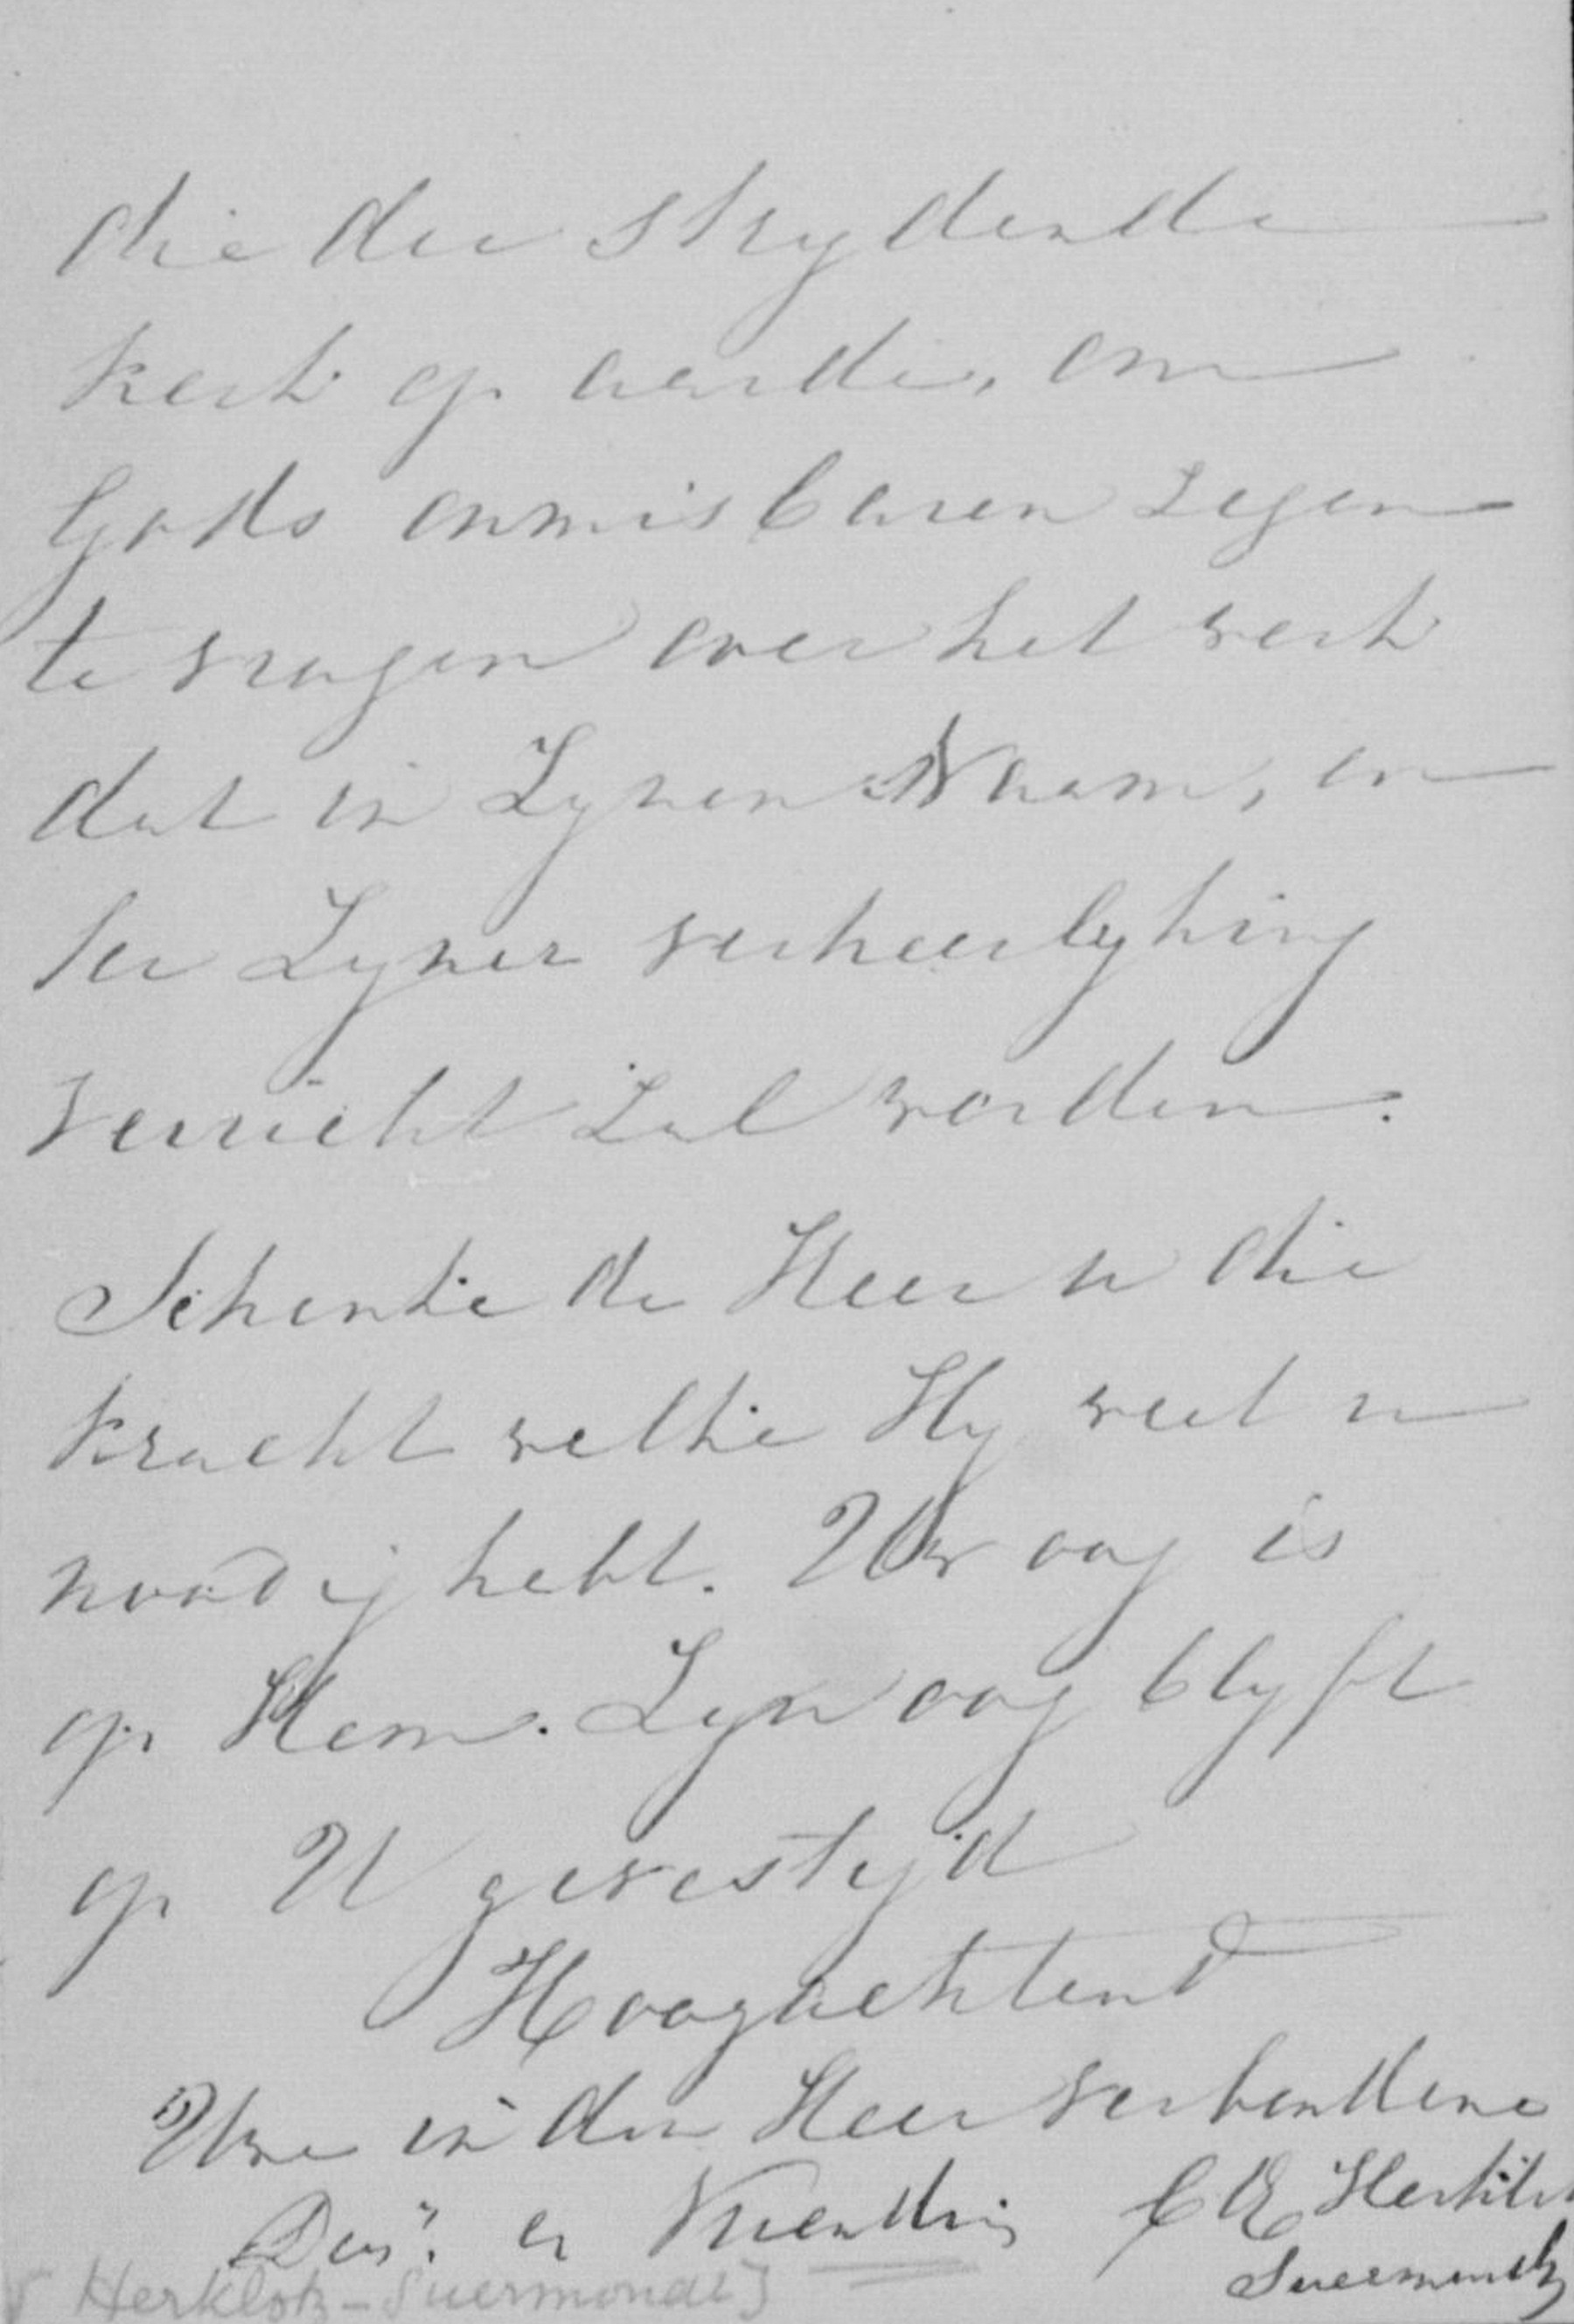 die der strydende
kerk op aarde, om
Gods onmisbaren zegen
te vragen over het werk
dat in Zynen Naam, en
ter Zyner verheerlyking
verricht zal worden.
Schenke de Heer u die
kracht welke Hy weet u
noodig hebt. Uw oog is
op Hem. Zyn oog blyft
op U gevestigd
Hoogachtend
Uwe in den Heer verbondene
Dnsᵉ. en Vriendin C E Herklots
Suermondt
Herklots-Suermondt]